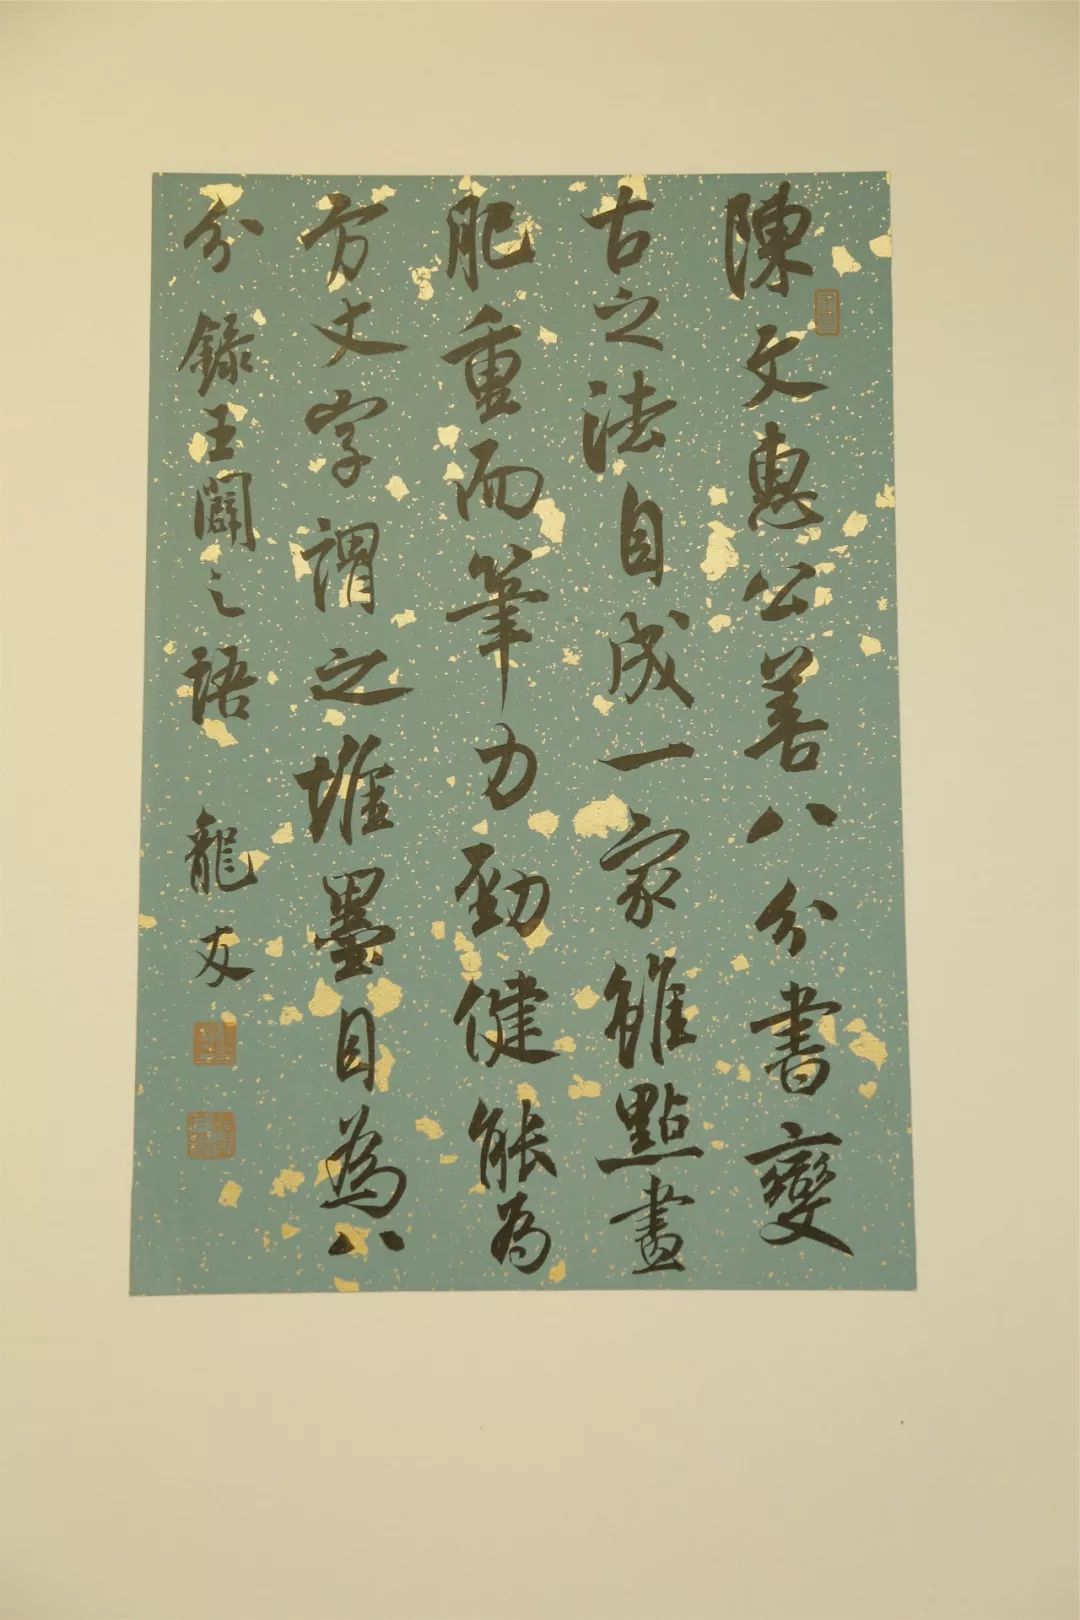 陳文惠公善八分書變
古之法自成一家雖點畫
肥重而筆力勁健能為
方丈字謂之堆墨目為八
分 錄王闢之語 龍友